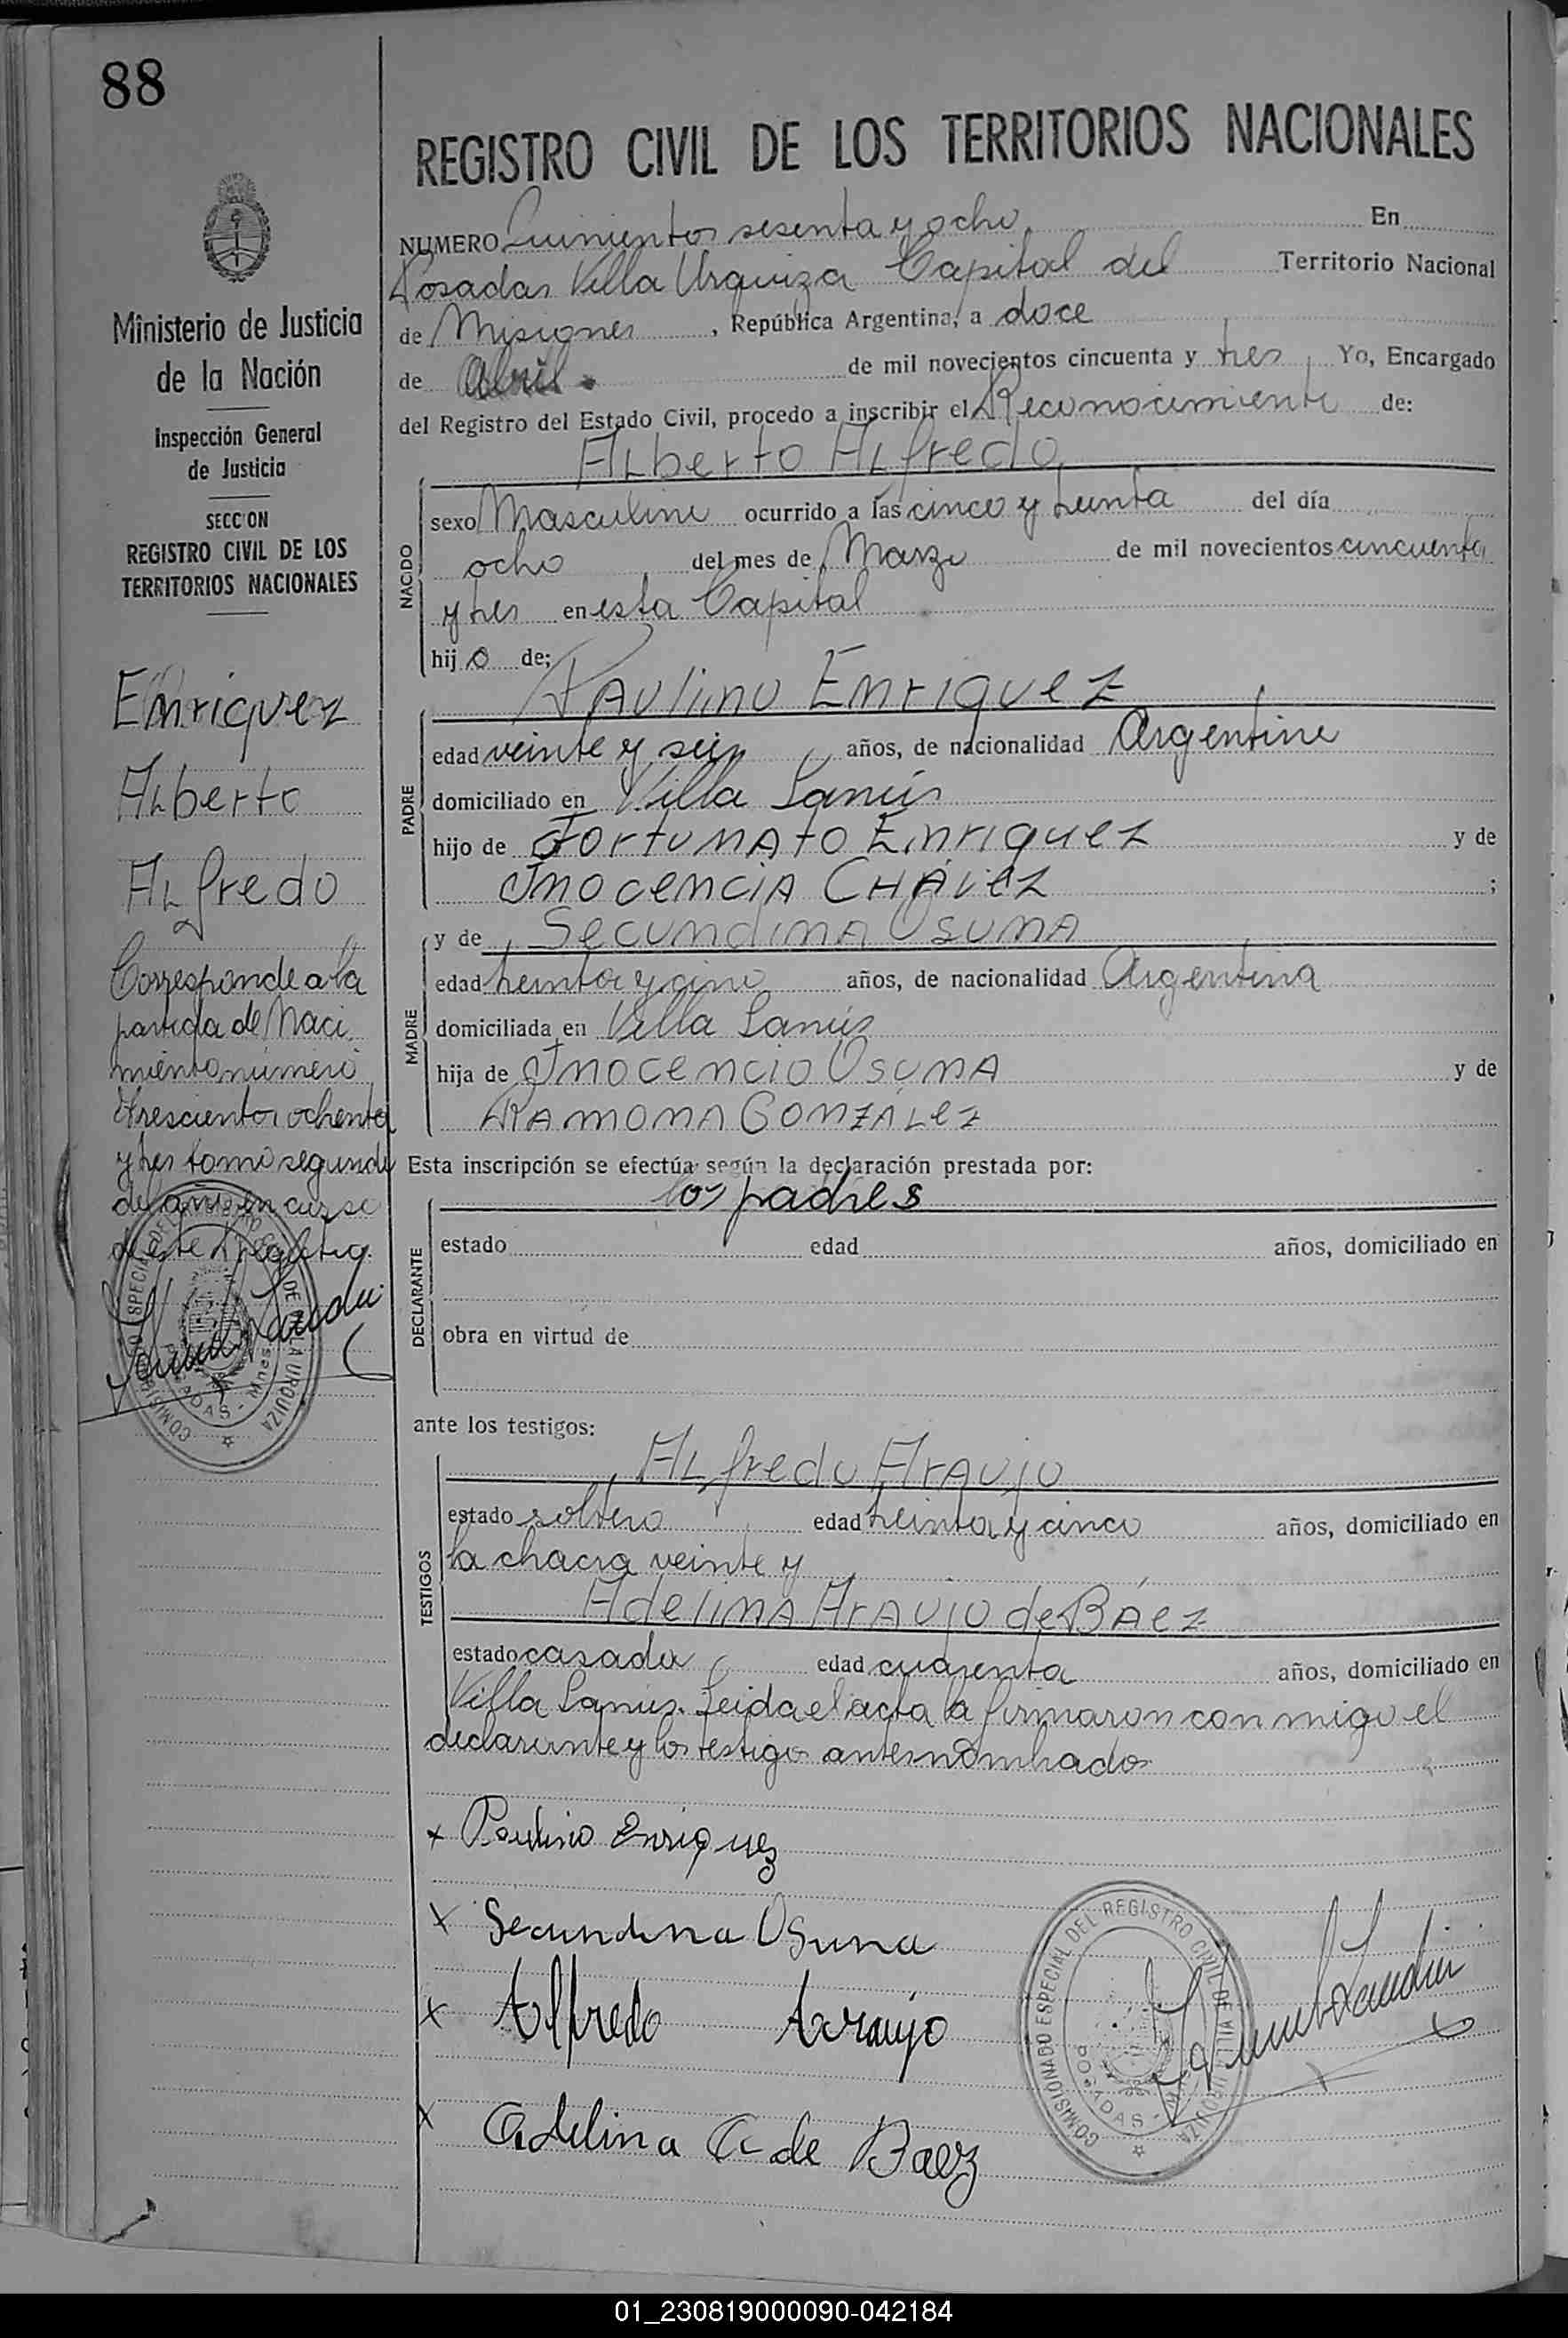 88
REGISTRO CIVIL DE LOS TERRITORIOS NACIONALES
NUMERO Quinientos sesenta y ocho En
Posadas Villa Urquiza Capital del Territorio Nacional
de Misiones, República Argentina, a doce
de Abril de mil novecientos cincuenta y tres Yo, Encargado
del Registro del Estado Civil, procedo a inscribir el Reconocimiento de:
Alberto Alfredo
NACIDO
sexo Masculino ocurrido a las cinco y treinta del día
ocho del mes de Marzo de mil novecientos cincuenta
y tres en esta Capital
hijo de;
Paulino Enriquez
PADRE
edad veinte y seis años, de nacionalidad Argentino
domiciliado en Villa Lanús
hijo de Fortunato Enriquez y de
Inocencia Chávez ;
MADRE
y de Secundina Osuna
edad treinta y cinco años, de nacionalidad Argentina
domiciliada en Villa Lanús
hija de Inocencio Osuna y de
Ramona González
Esta inscripción se efectúa según la declaración prestada por:
los padres
DECLARANTE
estado edad años, domiciliado en
obra en virtud de
ante los testigos:
Alfredo Araujo
TESTIGOS
estado soltero edad treinta y cinco años, domiciliado en
la chacra veinte y
Adelina Araujo de Báez
estado casada edad cuarenta años, domiciliado en
Villa Lanús. Leida el acta la firmaron con migo el
declarante y los testigos antesnombrados
x Paulino Enriquez
x Secundina Osuna
x Alfredo Araujo
x Adelina A de Baez
COMISIONADO ESPECIAL DEL REGISTRO CIVIL DE VILLA URQUIZA
POSADAS - MNES
Ministerio de Justicia
de la Nación
Inspección General
de Justicia
SECCION
REGISTRO CIVIL DE LOS
TERRITORIOS NACIONALES
Enriquez
Alberto
Alfredo
Corresponde a la
partida de Naci
miento número
trescientos ochenta
y tres tomo segundo
del año en curso
de este Registro.
01_230819000090-042184